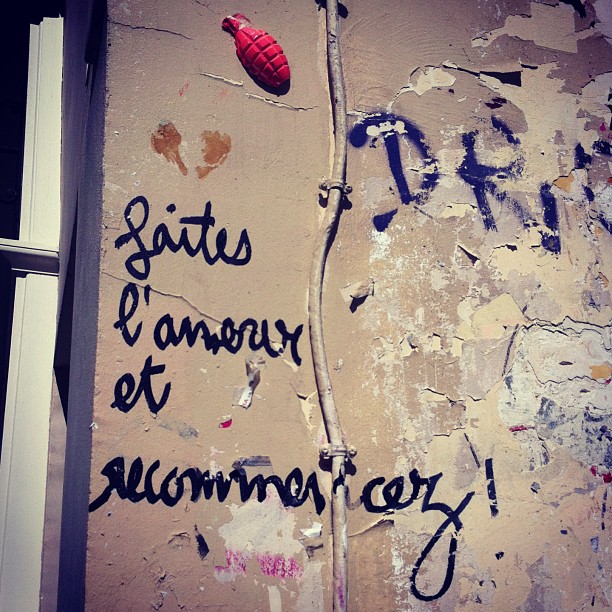 faites
l'amour
et
recommencez!